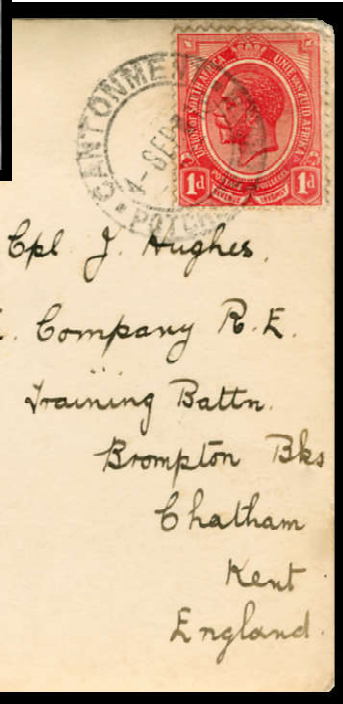 CANTONMENT
4-SEP
UNION OF SOUTH AFRICA
UNIE VAN ZUID AFRIKA
POSTAGE POSTZEGEL
REVENUE INKOMST
1d 1d
Cpl J. Hughes.
Company R.E.
Training Battn.
Brompton Bks
Chatham
Kent
England.